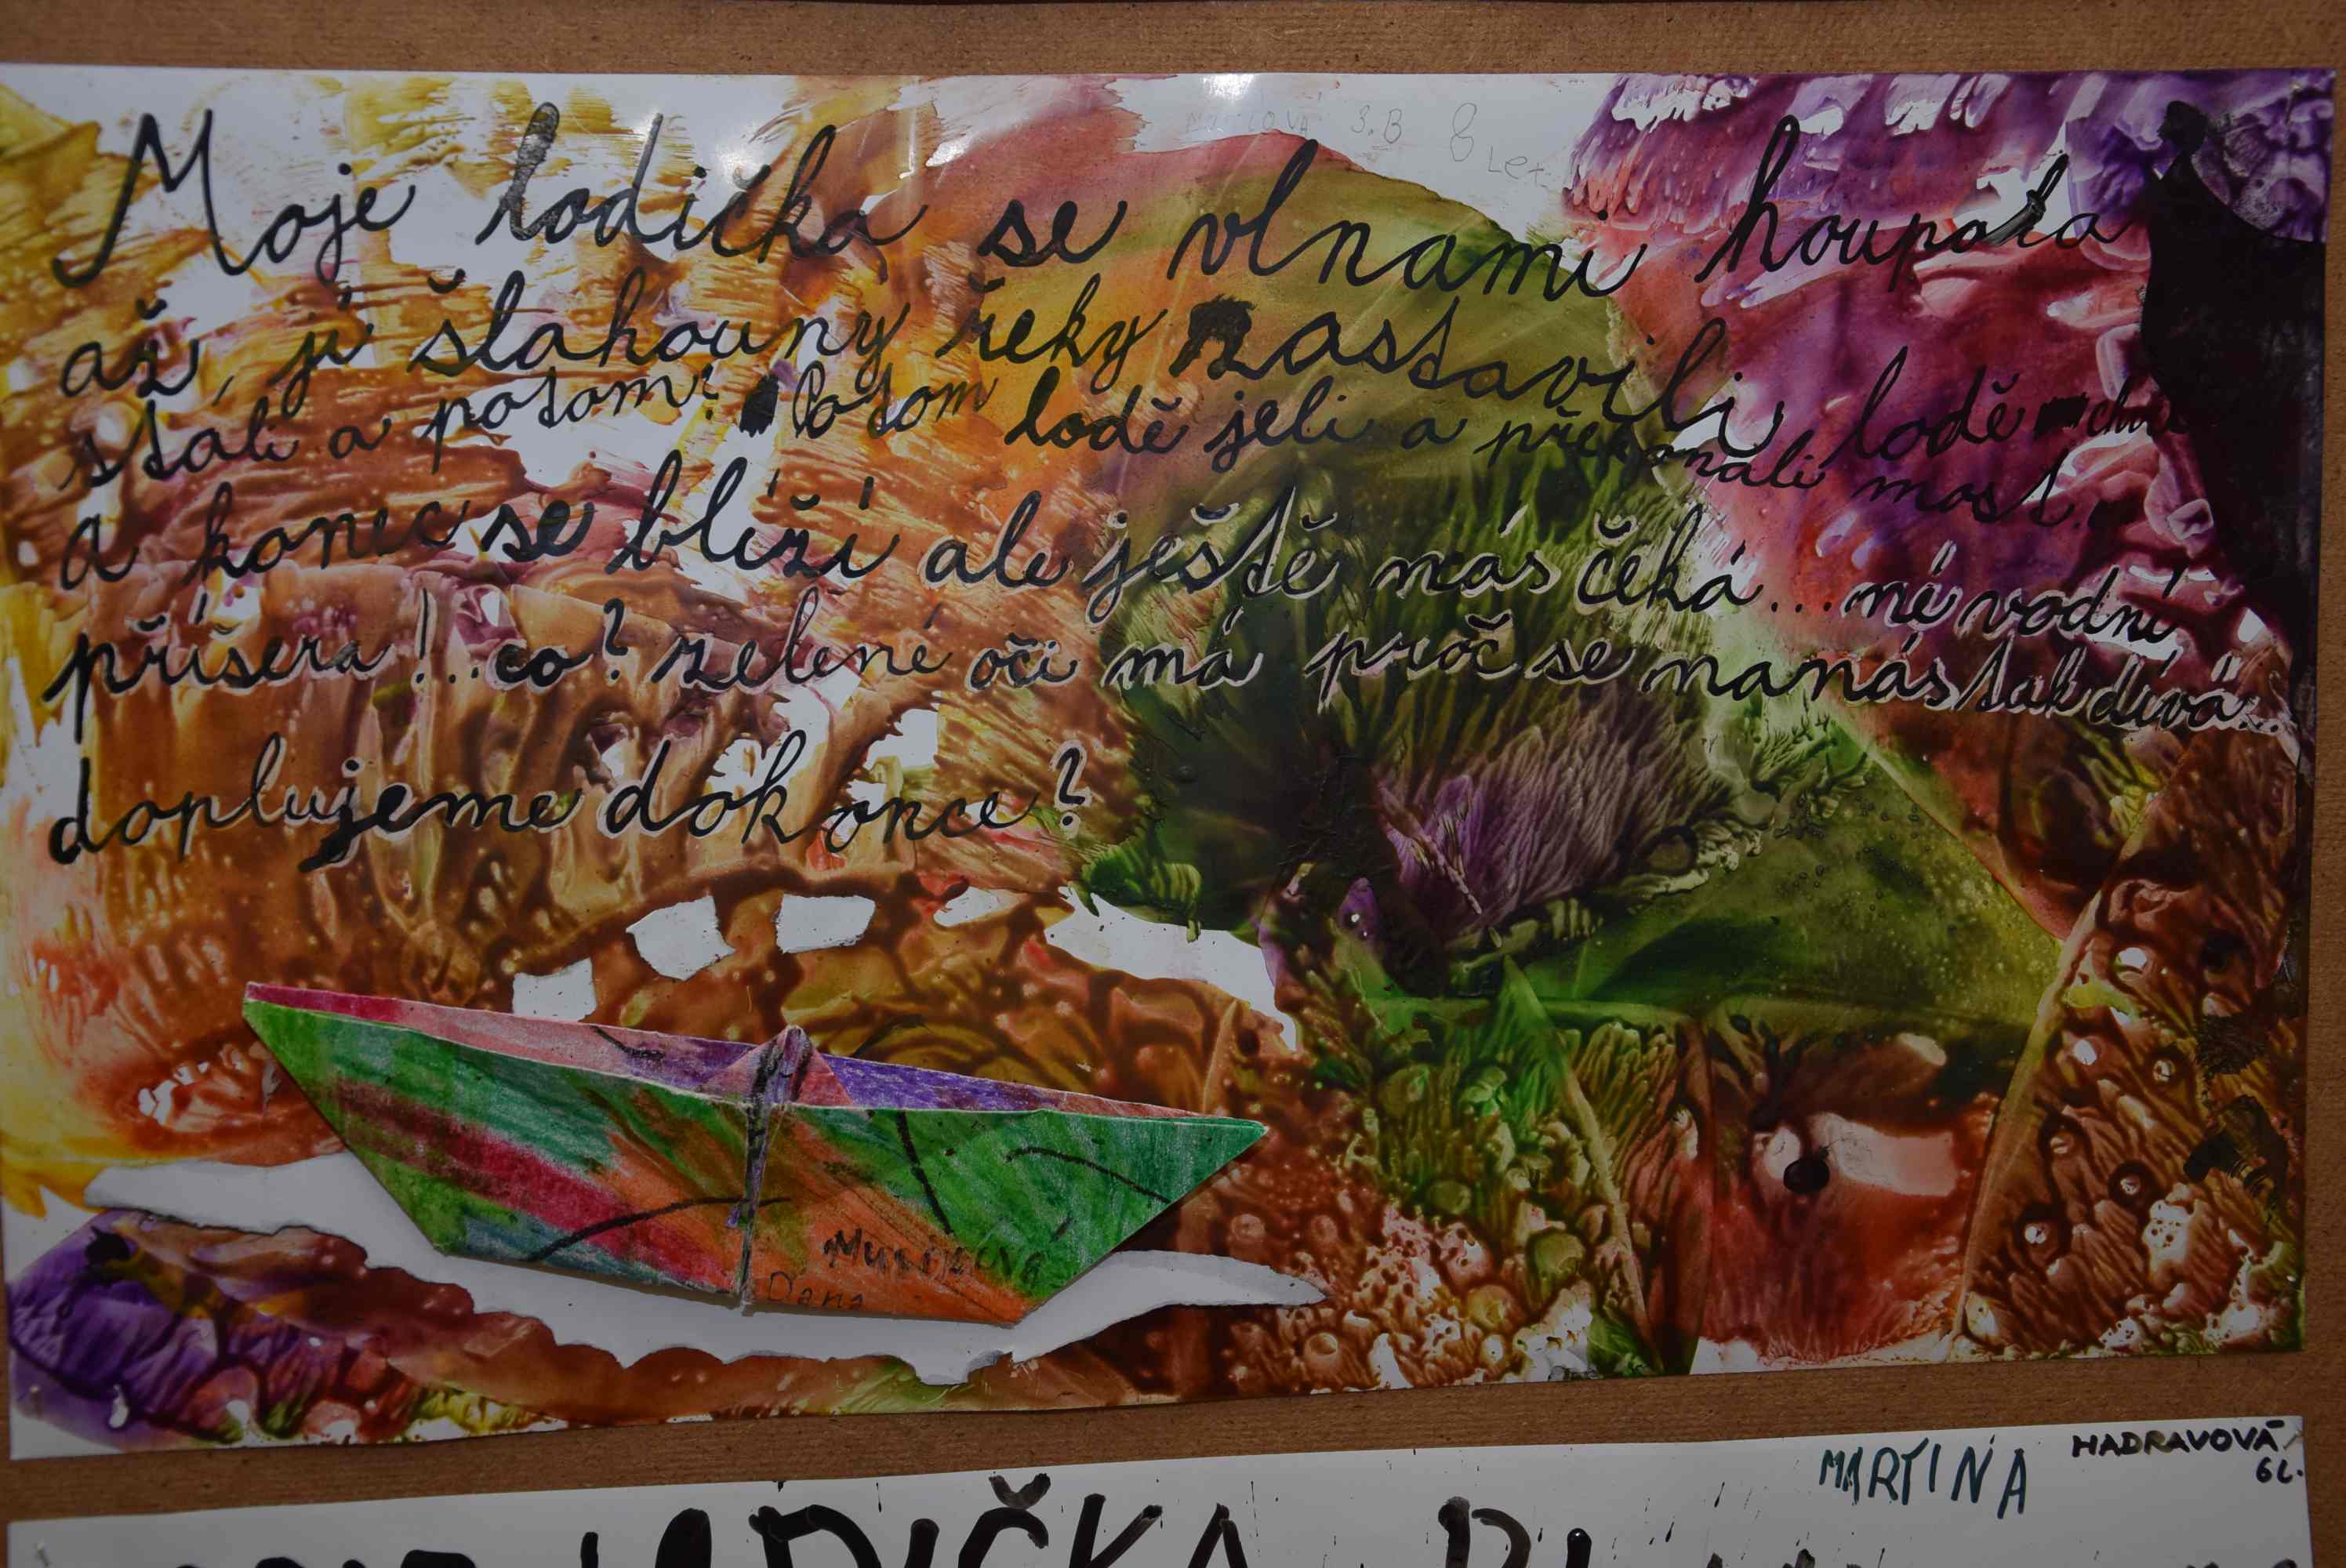 3.B 8 Let
Moje lodička se vlnami houpala
až, ji šlahouny řeky zastavili, lodě
stali a potom? Potom lodě jeli a překonali most.
a konec se blíží ale ještě nás čeká...né vodní
příšera!..co? zelené oči má proč se nanás tak dívá...
doplujeme dokonce?
Dana
MARTINA HADRAVOVÁ
6L.
LODIČKA